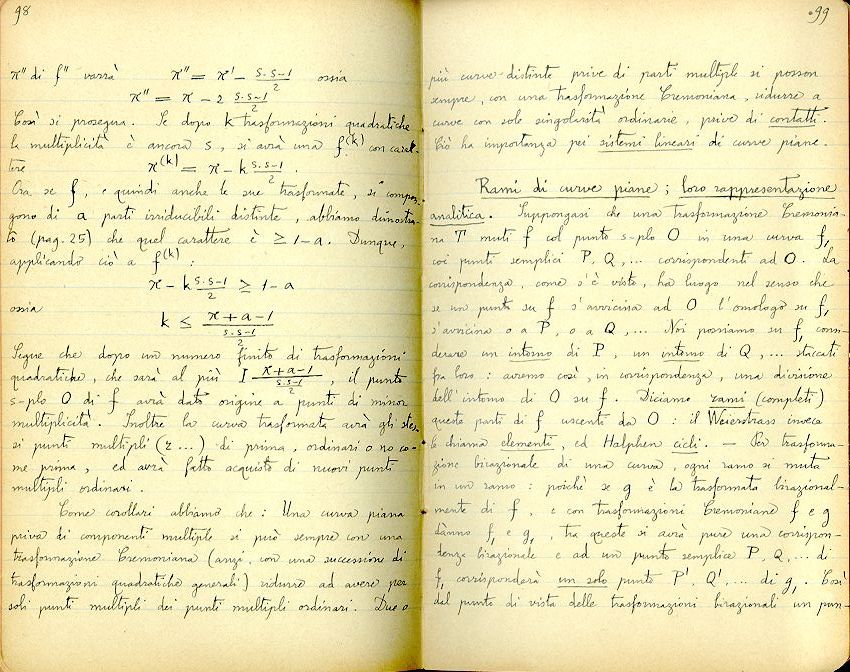 98
π'' di f'' varrà π'' = π' − s·s−1/2 ossia
π'' = π − 2 s·s−1/2
Così si prosegua. Se dopo k trasformazioni quadratiche
la multiplicità è ancora s, si avrà una f^(k) con carat-
tere π^(k) = π − k s·s−1/2 .
Ora se f, e quindi anche le sue trasformate, si compon-
gono di a parti irriducibili distinte, abbiamo dimostra-
to (pag. 25) che quel carattere è ≥ 1−a. Dunque,
applicando ciò a f^(k) :
π − k s·s−1/2 ≥ 1−a
ossia
k ≤ π+a−1 / s·s−1/2
Segue che dopo un numero finito di trasformazioni
quadratiche, che sarà al più I π+a−1 / s·s−1/2 , il punto
s-plo O di f avrà dato origine a punti di minor
multiplicità. Inoltre la curva trasformata avrà gli stes-
si punti multipli (r ...) di prima, ordinari o no co-
me prima, ed avrà fatto acquisto di nuovi punti
multipli ordinari.
Come corollari abbiamo che: Una curva piana
priva di componenti multiple si può sempre con una
trasformazione Cremoniana (anzi, con una successione di
trasformazioni quadratiche generali) ridurre ad avere per
soli punti multipli dei punti multipli ordinari. Due o
99
più curve distinte prive di parti multiple si posson
sempre, con una trasformazione Cremoniana, ridurre a
curve con sole singolarità ordinarie, prive di contatti.
Ciò ha importanza pei sistemi lineari di curve piane.
Rami di curve piane; loro rappresentazione
analitica. Suppongasi che una trasformazione Cremonia-
na T muti f col punto s-plo O in una curva f₁
coi punti semplici P, Q, ... corrispondenti ad O. La
corrispondenza, come s'è visto, ha luogo nel senso che
se un punto su f s'avvicina ad O l'omologo su f₁
s'avvicina o a P, o a Q, ... Noi possiamo su f₁ consi-
derare un intorno di P, un intorno di Q, ... staccati
fra loro: avremo così, in corrispondenza, una divisione
dell'intorno di O su f. Diciamo rami (completi)
queste parti di f uscenti da O: il Weierstrass invece
li chiama elementi, ed Halphen cicli. — Per trasforma-
zione birazionale di una curva, ogni ramo si muta
in un ramo: poichè se g è la trasformata birazional-
mente di f, e con trasformazioni Cremoniane f e g
dànno f₁ e g₁, tra queste si avrà pure una corrispon-
denza birazionale e ad un punto semplice P, Q, ... di
f₁ corrisponderà un solo punto P', Q', ... di g₁. Così
dal punto di vista delle trasformazioni birazionali un pun-